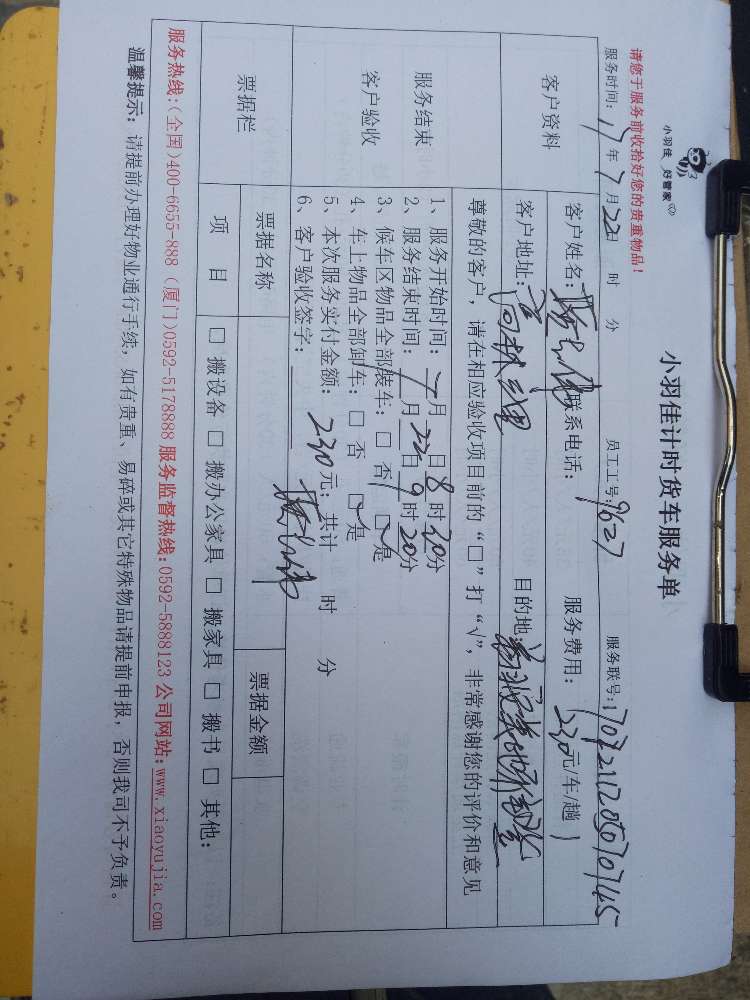 小羽佳 好管家
小羽佳计时货车服务单
请您于服务前收拾好您的贵重物品！
服务时间：17年7月22日 时 分 员工工号：9627 服务联号：
客户资料
客户姓名： 联系电话： 服务费用：230元/车/趟
客户地址：高林三里 目的地：
尊敬的客户，请在相应验收项目前的“□”打“√”，非常感谢您的评价和意见
服务结束
客户验收
1、服务开始时间：7月 日8时20分
2、服务结束时间：7月22日9时20分
3、候车区物品全部装车：□ 否 □ 是
4、车上物品全部卸车：□ 否 □ 是
5、本次服务实付金额：230元；共计 时 分
6、客户验收签字：
票据栏
票据名称 票据金额
项 目 □ 搬设备 □ 搬办公家具 □ 搬家具 □ 搬书 □ 其他：
服务热线：(全国)400-6655-888 (厦门)0592-5178888 服务监督热线：0592-5888123 公司网站：www.xiaoyujia.com
温馨提示：请提前办理好物业通行手续，如有贵重、易碎或其它特殊物品请提前申报，否则我司不予负责。